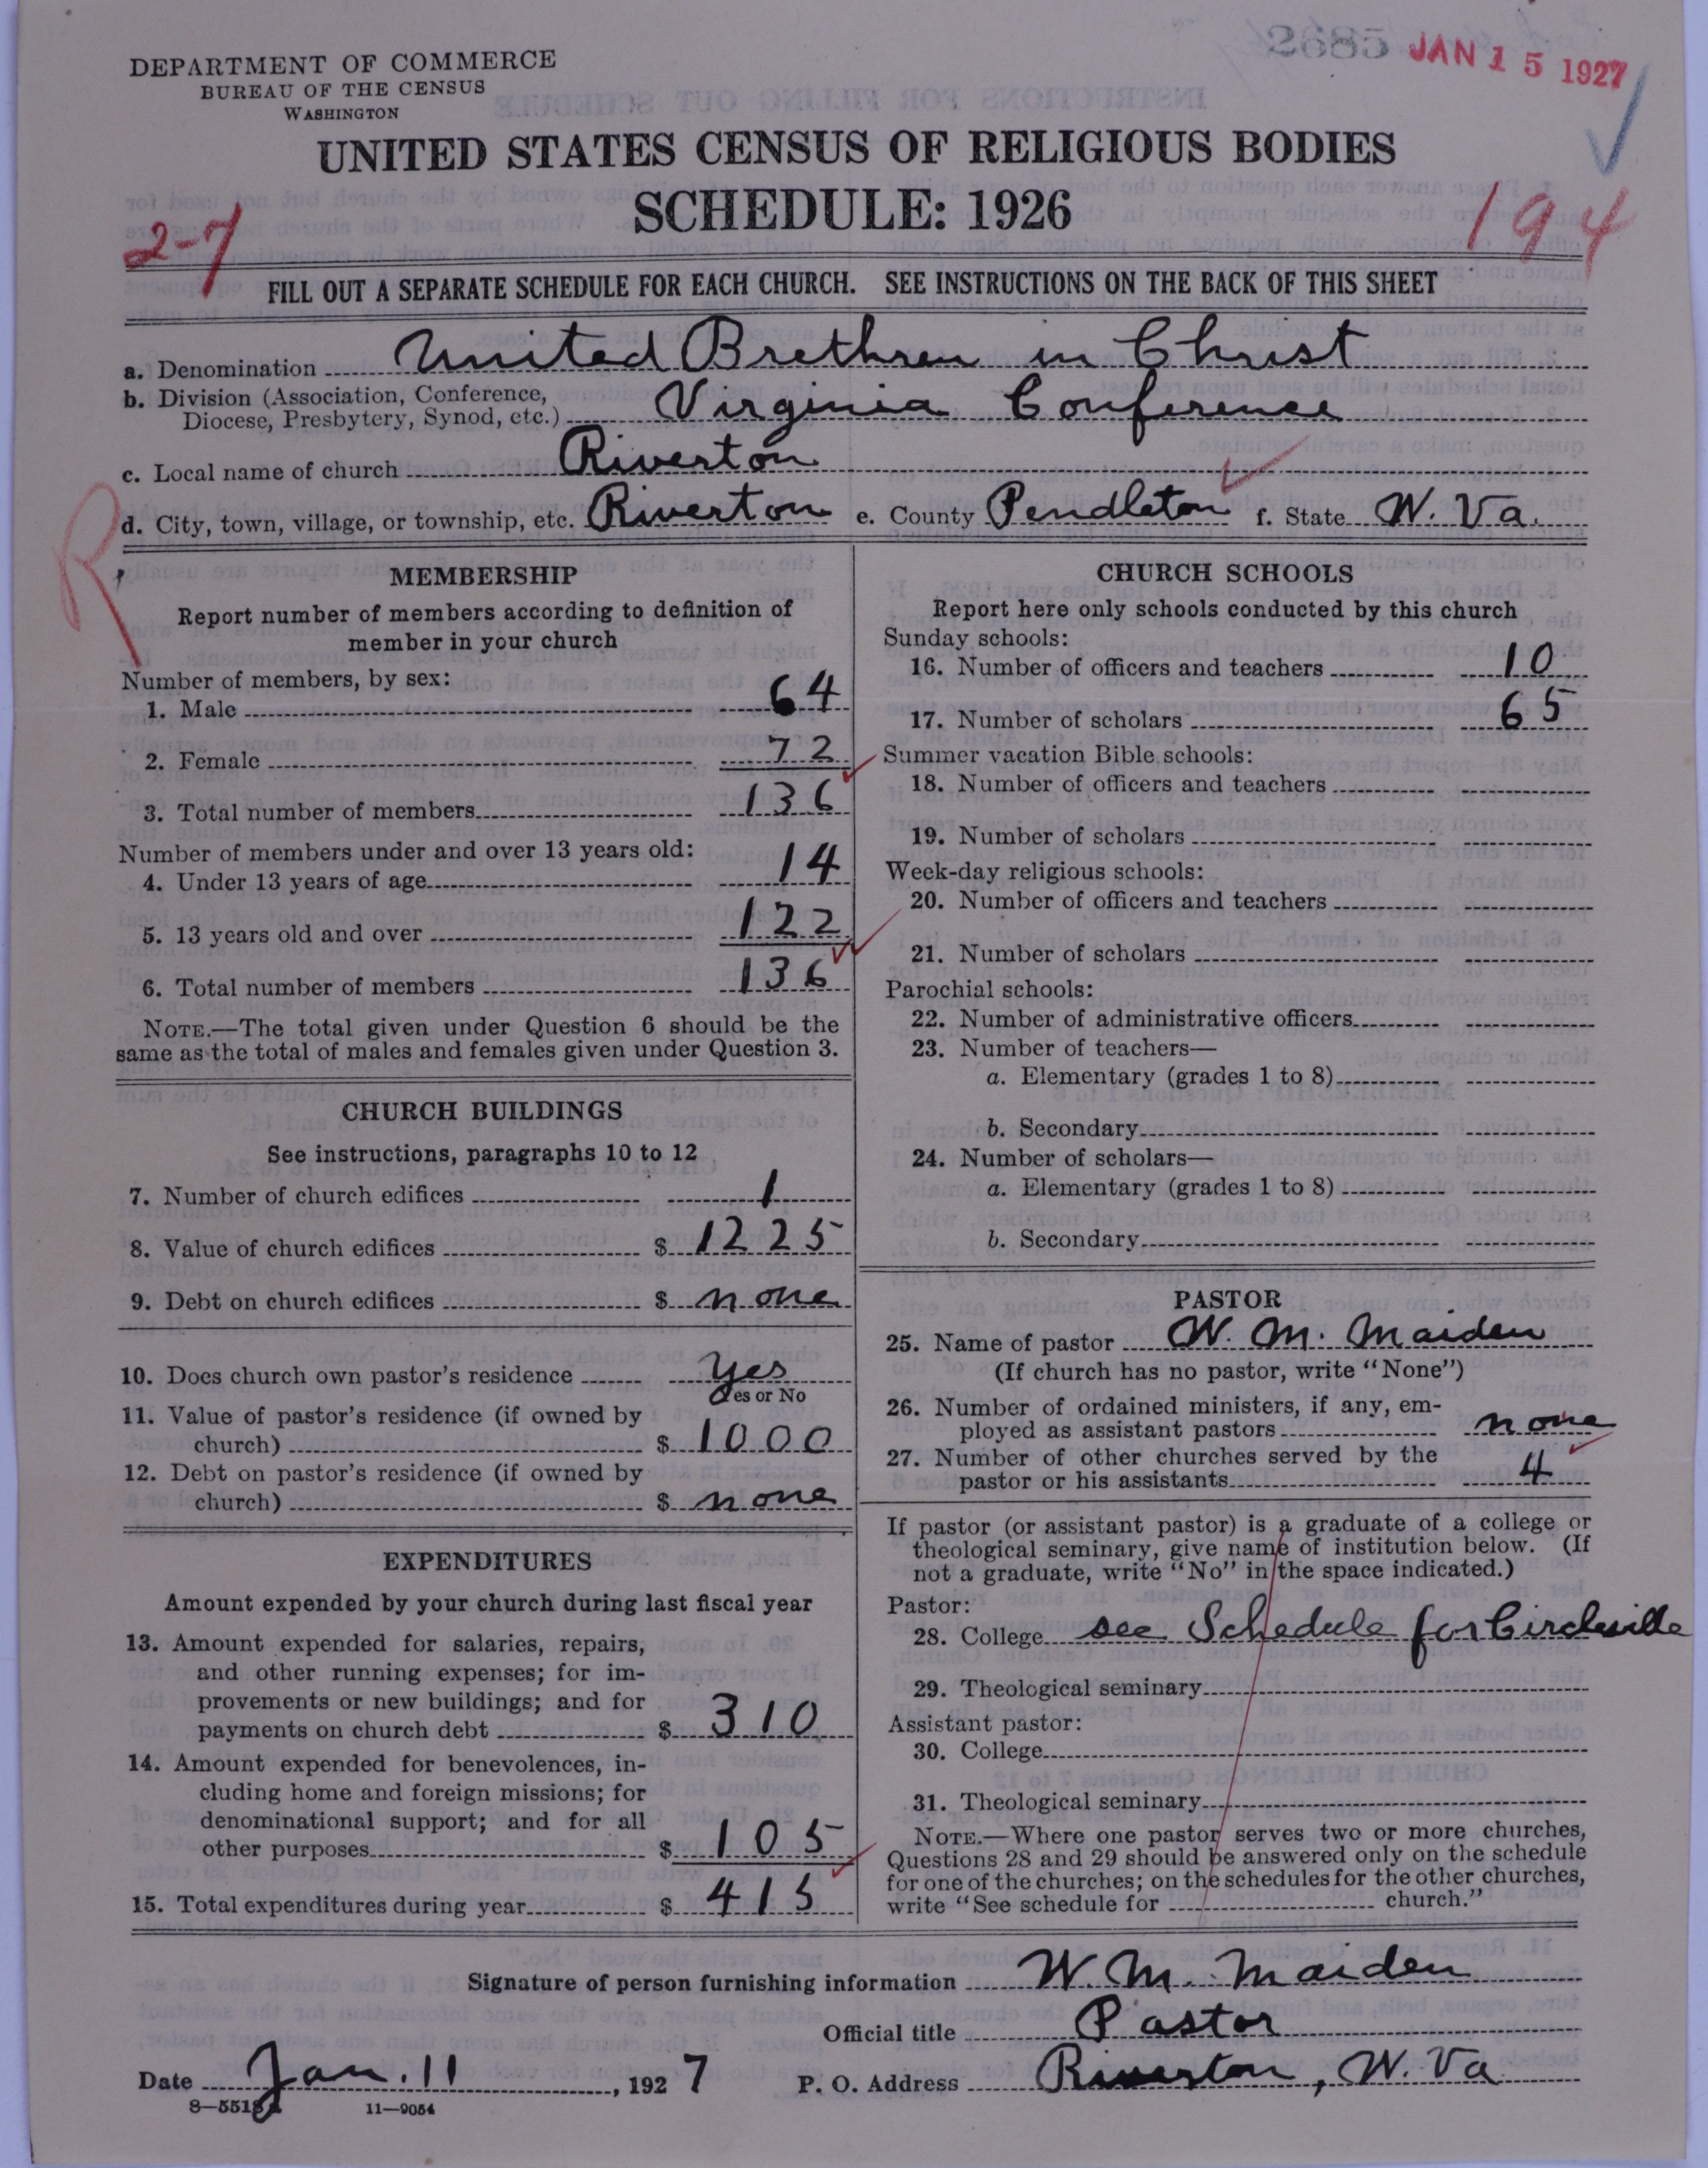 DEPARTMENT OF COMMERCE
BUREAU OF THE CENSUS
WASHINGTON
2685 JAN 15 1927
UNITED STATES CENSUS OF RELIGIOUS BODIES
SCHEDULE: 1926
2-7
194
FILL OUT A SEPARATE SCHEDULE FOR EACH CHURCH. SEE INSTRUCTIONS ON THE BACK OF THIS SHEET
a. Denomination United Brethren in Christ
b. Division (Association, Conference,
Diocese, Presbytery, Synod, etc.) Virginia Conference
c. Local name of church Riverton
d. City, town, village, or township, etc. Riverton e. County Pendleton f. State W. Va.
R
MEMBERSHIP
Report number of members according to definition of
member in your church
Number of members, by sex:
1. Male 64
2. Female 72
3. Total number of members 136
Number of members under and over 13 years old:
4. Under 13 years of age 14
5. 13 years old and over 122
6. Total number of members 136
NOTE.—The total given under Question 6 should be the
same as the total of males and females given under Question 3.
CHURCH BUILDINGS
See instructions, paragraphs 10 to 12
7. Number of church edifices 1
8. Value of church edifices $ 1225
9. Debt on church edifices $ none
10. Does church own pastor's residence yes
Yes or No
11. Value of pastor's residence (if owned by
church) $ 1000
12. Debt on pastor's residence (if owned by
church) $ none
EXPENDITURES
Amount expended by your church during last fiscal year
13. Amount expended for salaries, repairs,
and other running expenses; for im-
provements or new buildings; and for
payments on church debt $ 310
14. Amount expended for benevolences, in-
cluding home and foreign missions; for
denominational support; and for all
other purposes $ 105
15. Total expenditures during year $ 415
CHURCH SCHOOLS
Report here only schools conducted by this church
Sunday schools:
16. Number of officers and teachers 10
17. Number of scholars 65
Summer vacation Bible schools:
18. Number of officers and teachers
19. Number of scholars
Week-day religious schools:
20. Number of officers and teachers
21. Number of scholars
Parochial schools:
22. Number of administrative officers
23. Number of teachers—
a. Elementary (grades 1 to 8)
b. Secondary
24. Number of scholars—
a. Elementary (grades 1 to 8)
b. Secondary
PASTOR
25. Name of pastor W. M. Maiden
(If church has no pastor, write "None")
26. Number of ordained ministers, if any, em-
ployed as assistant pastors none
27. Number of other churches served by the
pastor or his assistants 4
If pastor (or assistant pastor) is a graduate of a college or
theological seminary, give name of institution below. (If
not a graduate, write "No" in the space indicated.)
Pastor:
28. College see Schedule for Circleville
29. Theological seminary
Assistant pastor:
30. College
31. Theological seminary
NOTE.—Where one pastor serves two or more churches,
Questions 28 and 29 should be answered only on the schedule
for one of the churches; on the schedules for the other churches,
write "See schedule for church."
Signature of person furnishing information W. M. Maiden
Official title Pastor
Date Jan. 11, 1927 P. O. Address Riverton, W. Va
11—9054